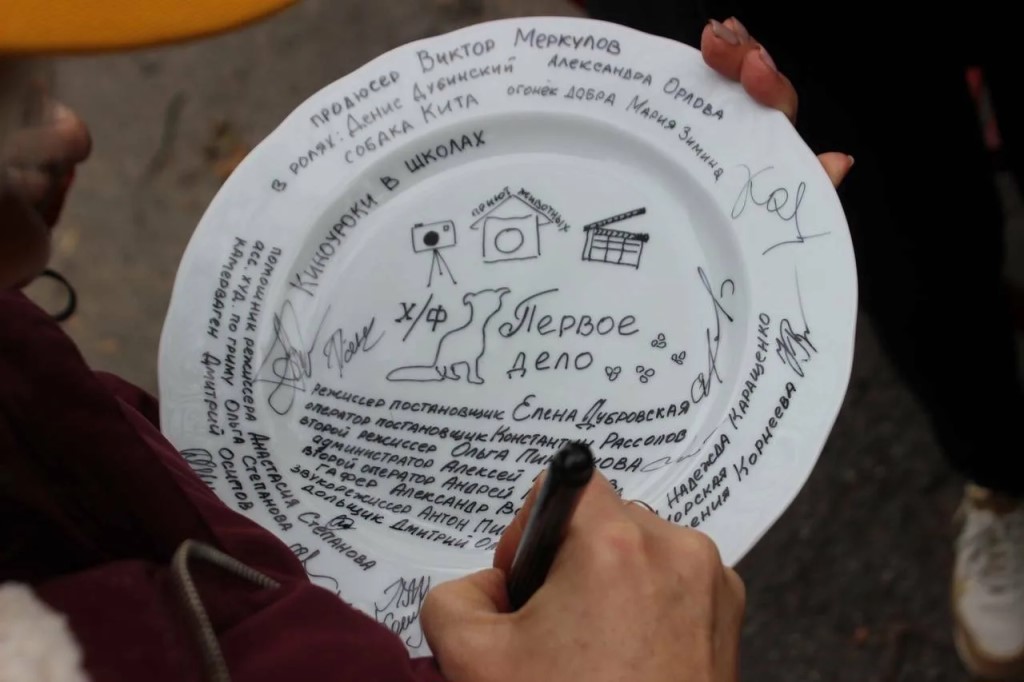 продюсер Виктор Меркулов
в ролях: Денис Дубинский Александра Орлова
собака Кита огонёк добра Мария Зимина
Киноуроки в школах
приют животных
х/ф Первое
дело
режиссер постановщик Елена Дубровская
оператор постановщик Константин Рассолов
второй режиссер Ольга
администратор Алексей
второй оператор Андрей
гафер Александр
звукорежиссер Антон
дольщик Дмитрий
помощник режиссера Анастасия Степанова
асс. худ. по гриму Ольга Степанова
камерваген Дмитрий Осипов
Надежда Каращенко
Корнеева